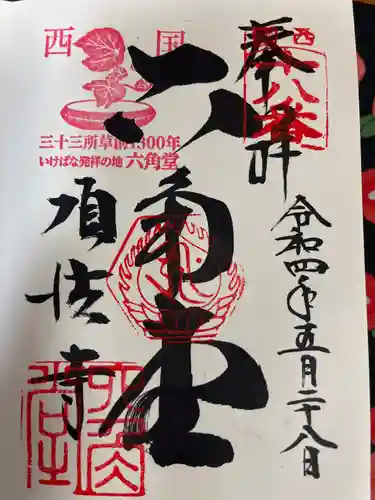 奉拝
西
十八番
令和四年五月二十八日
六角堂
西国
三十三所草創1300年
いけばな発祥の地 六角堂
頂法寺